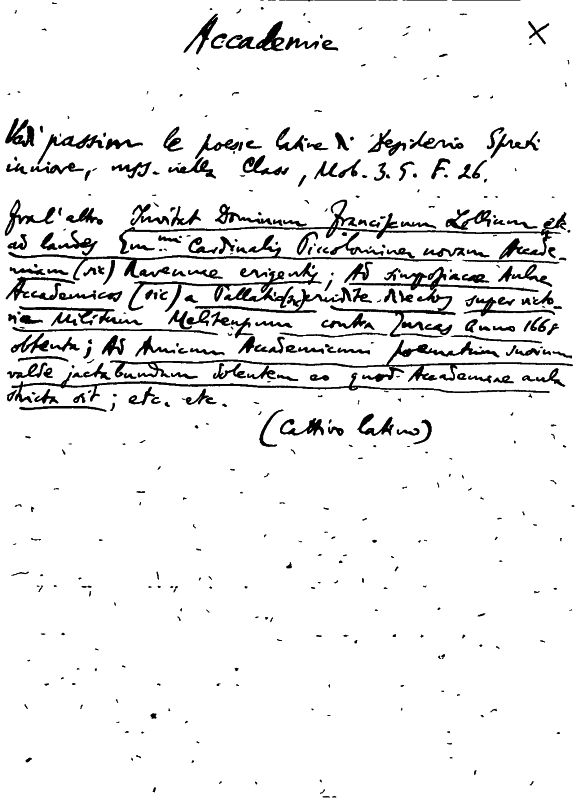 Accademie X
Vedi passim le poesie latine di Desiderio Spreti
iuniore, mss. nella Class, Mob. 3. 5. F. 26.
fra l'altro Invitat Dominum Franciscum Lollium etc.
ad laudes Em.mi Cardinalis Piccolominei novam Accade-
miam (sic) Ravennae erigentis; Ad Aulae
Academicos (sic) a Pallatio (sic) erudite directos super victo-
ria Militum Melitensium contra Turcas Anno 1668
obtenta; Ad Amicum Academicum poematum suorum
valde jactabundum dolentem eo quod Academiae aula
stricta sit; etc. etc.
(Cattivo latino)